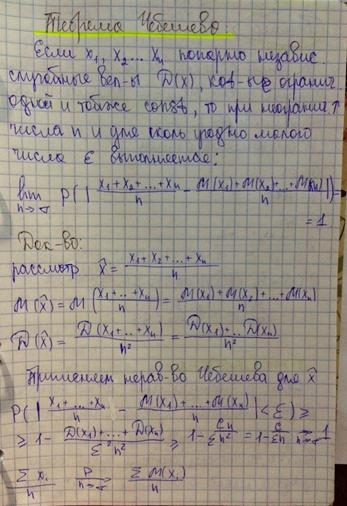 Теорема Чебешева.
Если x₁, x₂ ... xₙ попарно независ.
случайные вел-ы D(x), кот-ые огранич
одной и той же const, то при неогранич ↑
числа n и для сколь угодно малого
числа ε выполняется:
lim n→∞ P(| (x₁ + x₂ + ... + xₙ)/n - (M(x₁) + M(x₂) + ... + M(xₙ))/n |) =
= 1
Док-во:
рассмотр x̂ = (x₁ + x₂ + ... + xₙ)/n
M(x̂) = M((x₁ + ... + xₙ)/n) = (M(x₁) + M(x₂) + ... + M(xₙ))/n
D(x̂) = D(x₁ + ... + xₙ)/n² = (D(x₁) + ... D(xₙ))/n²
Применяем нерав-во Чебешева для x̂
P(| (x₁ + ... + xₙ)/n - (M(x₁) + ... + M(xₙ))/n | < ε) ≥
≥ 1 - (D(x₁) + ... + D(xₙ))/(ε²n²) ≥ 1 - cn/(εn²) = 1 - c/(εn) → n→∞ 1
Σxᵢ/n →P n→∞ ΣM(xᵢ)/n